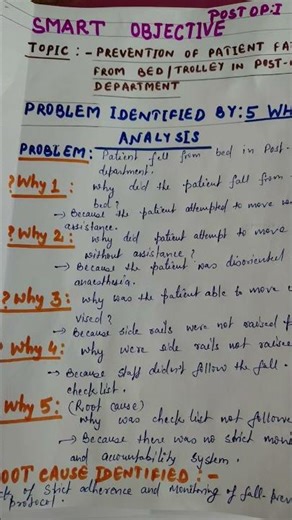 POST OP:I
SMART OBJECTIVE
TOPIC :- PREVENTION OF PATIENT
FROM BED/TROLLEY IN POST-
DEPARTMENT
PROBLEM IDENTIFIED BY: 5
ANALYSIS
PROBLEM: Patient fall from bed in Post-
department.
? Why 1 : why did the patient fall from
bed?
→ Because the patient attempted to move
assistance.
? Why 2: why did patient attempt to move
without assistance?
→ Because the patient was disoriented
anaesthesia.
? Why 3: why was the patient able to move
vised?
→ Because side rails were not raised
? Why 4: why were side rails not raised
→ Because staff didn't follow the fall
checklist.
Why 5: (Root cause)
why was checklist not
→ Because there was no strict
and accountability system.
ROOT CAUSE IDENTIFIED :-
of strict adherence and monitoring of
protocol.